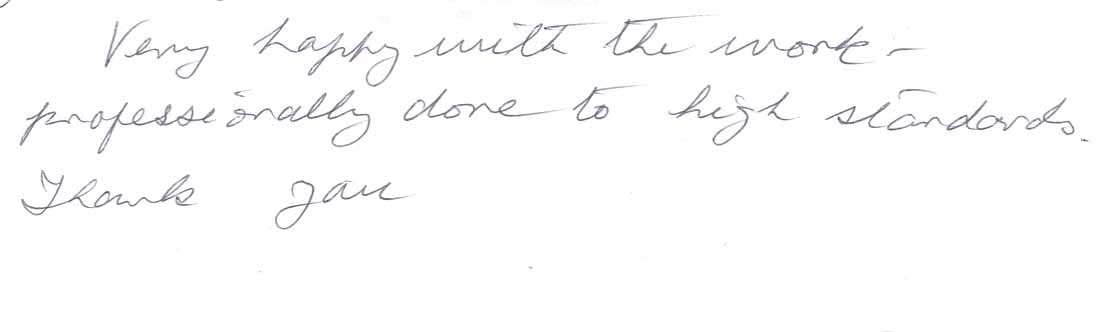 Very happy with the work –
professionally done to high standards.
Thank you